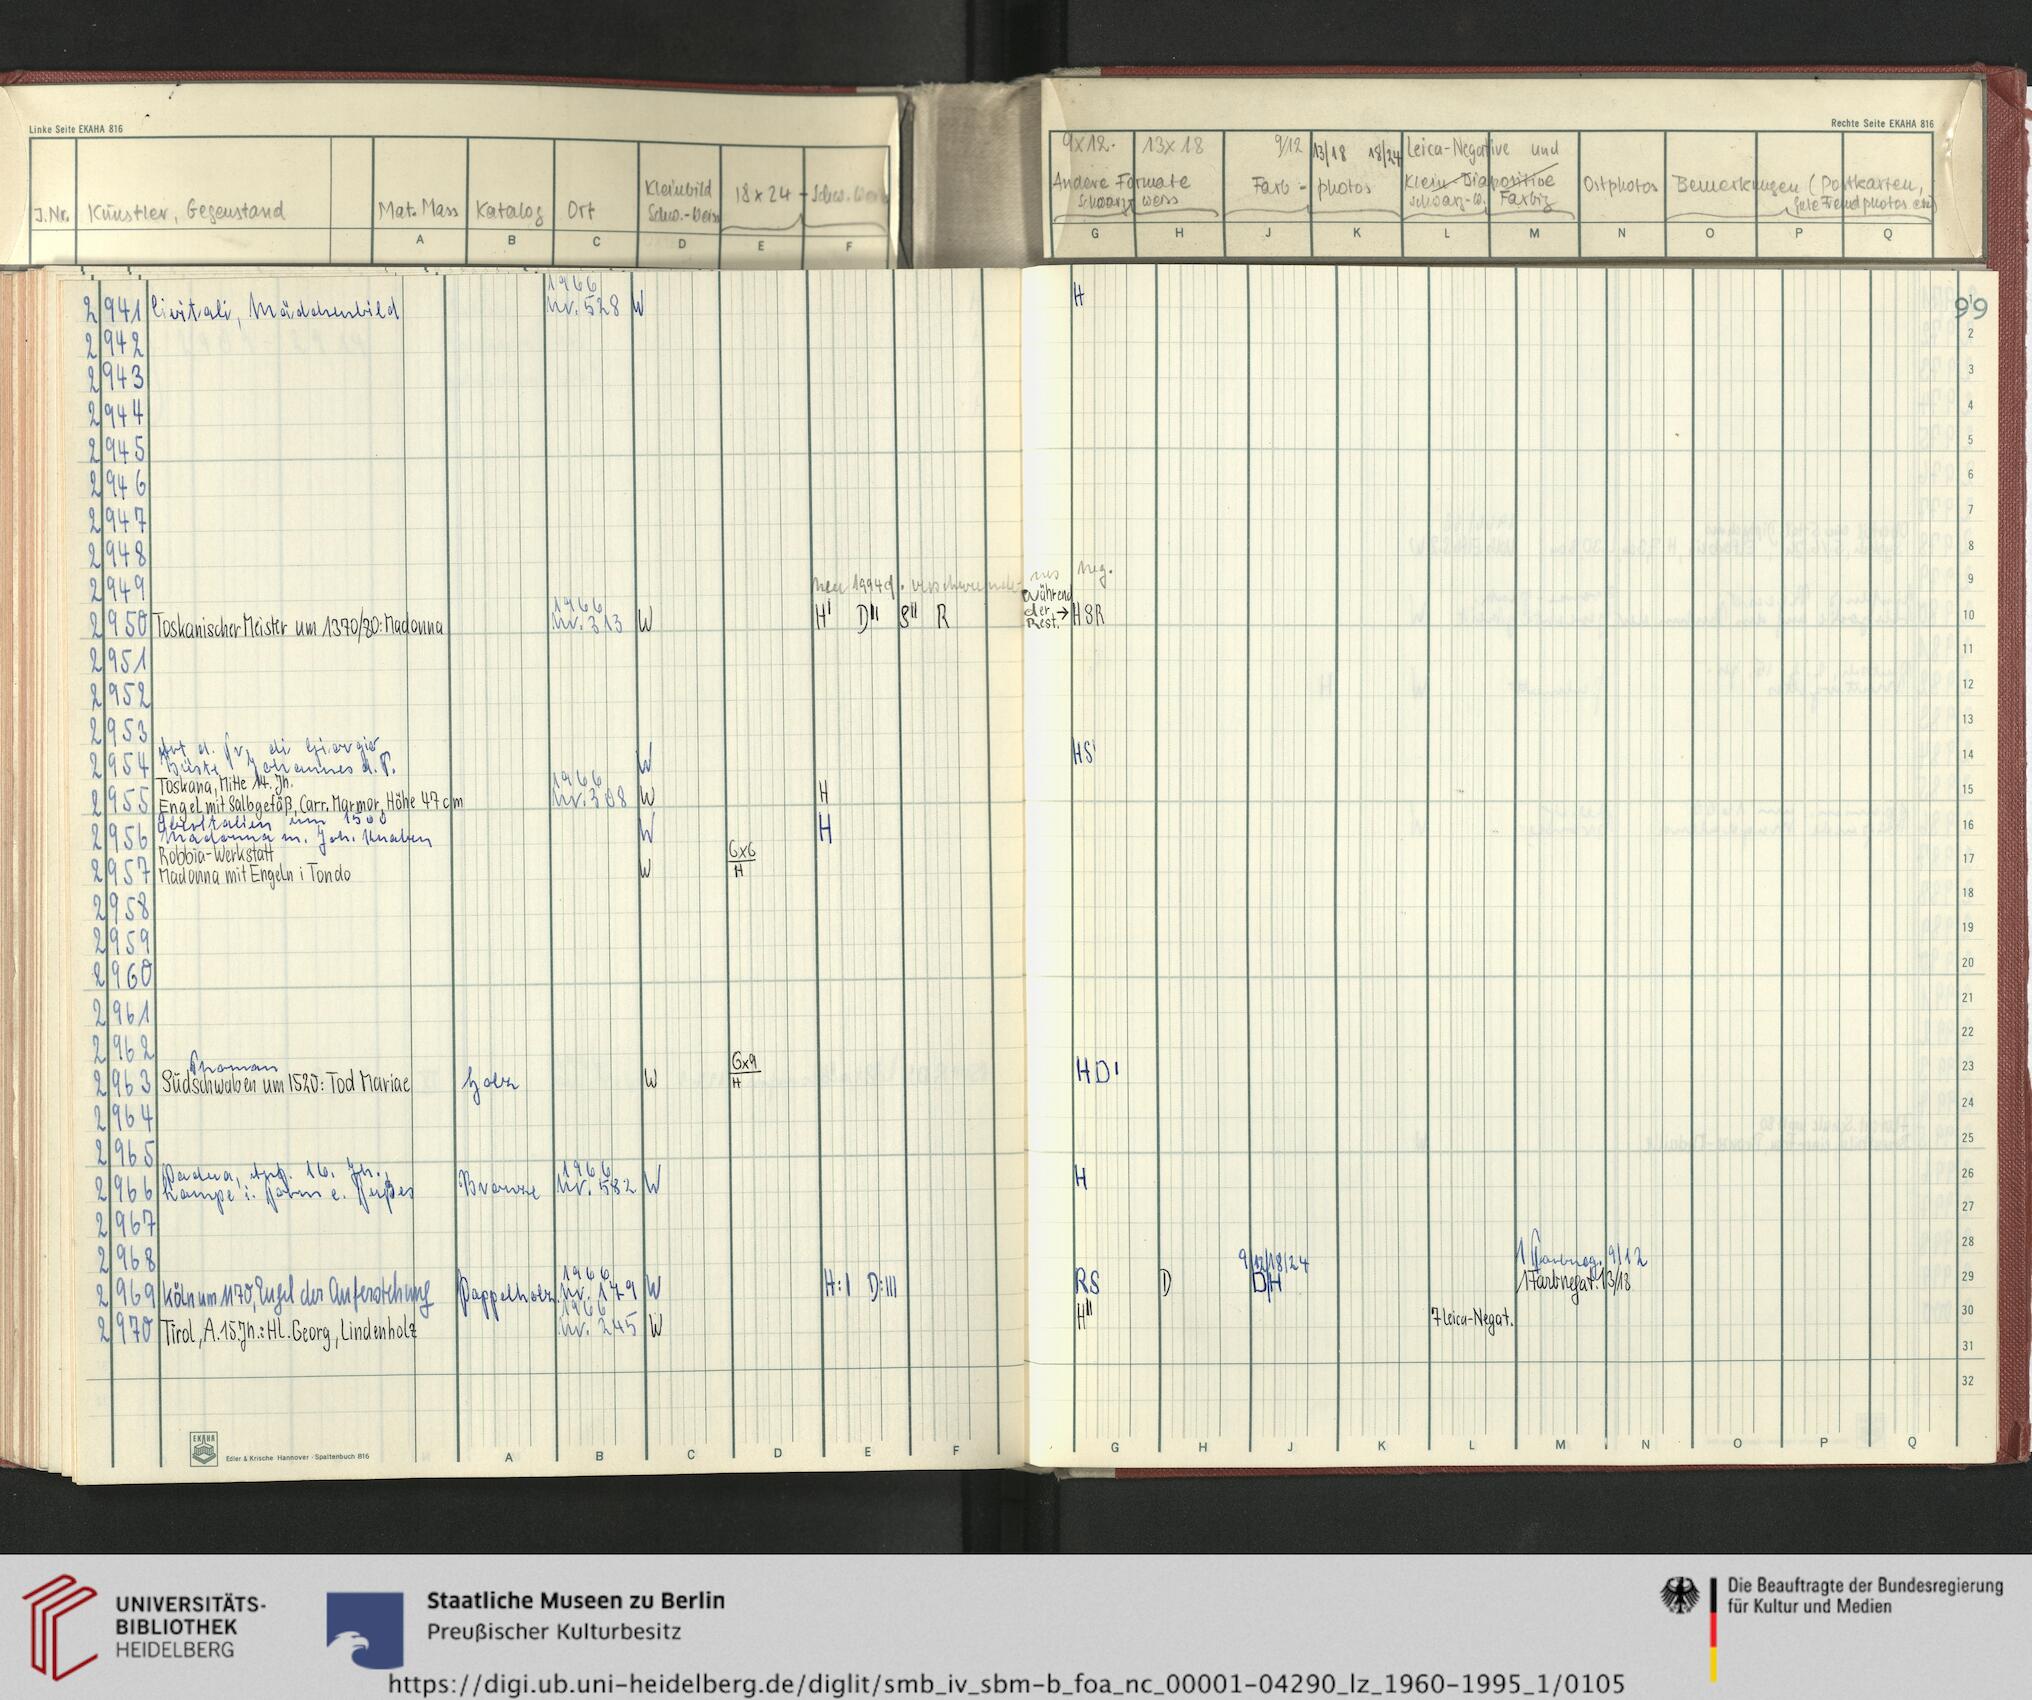 Linke Seite EKAHA 816
J.Nr. Künstler, Gegenstand Mat. Mass Katalog Ort Kleinbild Schw.-Weiss 18x24 - Schw. Weiss
A B C D E F
Rechte Seite EKAHA 816
9x12. 13x18 9/12 13/18 18/24 Leica-Negative und
Andere Formate Farb- photos Klein-Diapositive Ostphotos Bemerkungen (Postkarten,
schwarz weiss schwarz-w. Farbig gute Fremdphotos etc)
G H J K L M N O P Q
99
2941 Civitali, Mädchenbild 1966 Nr. 528 W H 1
2942 2
2943 3
2944 4
2945 5
2946 6
2947 7
2948 8
2949 9
neu 1994 neg.
Während der Rest. →
2950 Toskanischer Meister um 1370/80: Madonna 1966 Nr. 313 W H' D" S" R HSR 10
2951 11
2952 12
2953 13
Art d. Fr. di Giorgio
2954 Büste Johannes d. T. W HS' 14
Toskana, Mitte 14. Jh.
2955 Engel mit Salbgefäß, Carr. Marmor, Höhe 47 cm 1966 Nr. 308 W H 15
um 1500
2956 Madonna m. Joh. Knaben W H 16
Robbia-Werkstatt
2957 Madonna mit Engeln i Tondo W 6x6 H 17
2958 18
2959 19
2960 20
2961 21
2962 22
Thoman
2963 Südschwaben um 1520: Tod Mariae Holz W 6x9 H HD' 23
2964 24
2965 25
Padua, Anf. 16. Jh.
2966 Lampe i. Form e. Fußes Bronze 1966 Nr. 582 W H 26
2967 27
2968 28
9/12/18/24 1 Farbneg. 9/12
2969 Köln um 1170, Engel der Auferstehung Pappelholz 1966 Nr. 149 W H:I D:III RS D D/H 1 Farbnegat. 13/18 29
2970 Tirol, A. 15. Jh.: Hl. Georg, Lindenholz 1966 Nr. 245 W H" 7 Leica-Negat. 30
31
32
EKAHA
Edler & Krische Hannover · Spaltenbuch 816
A B C D E F
G H J K L M N O P Q
UNIVERSITÄTS-
BIBLIOTHEK
HEIDELBERG
Staatliche Museen zu Berlin
Preußischer Kulturbesitz
Die Beauftragte der Bundesregierung
für Kultur und Medien
https://digi.ub.uni-heidelberg.de/diglit/smb_iv_sbm-b_foa_nc_00001-04290_lz_1960-1995_1/0105